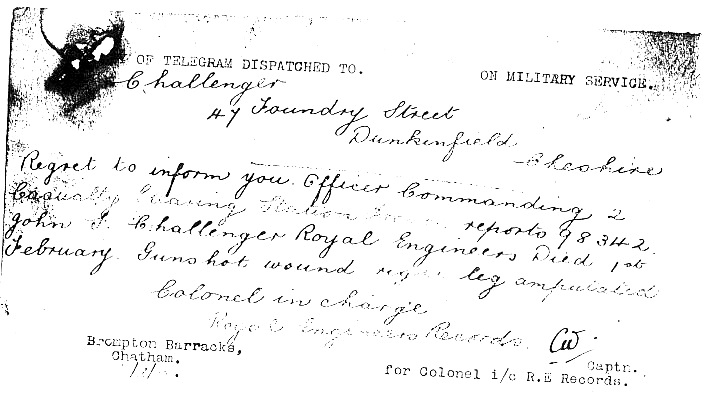 OF TELEGRAM DISPATCHED TO. ON MILITARY SERVICE.
Challenger
47 Foundry Street
Dunkinfield
Cheshire
Regret to inform you Officer Commanding 2
Casualty Clearing Station reports 98342
John J. Challenger Royal Engineers Died 1st
February Gunshot wound right leg amputated
Colonel in charge
Royal Engineers Records.
Brompton Barracks,
Chatham.
Captn.
for Colonel i/c R.E Records.